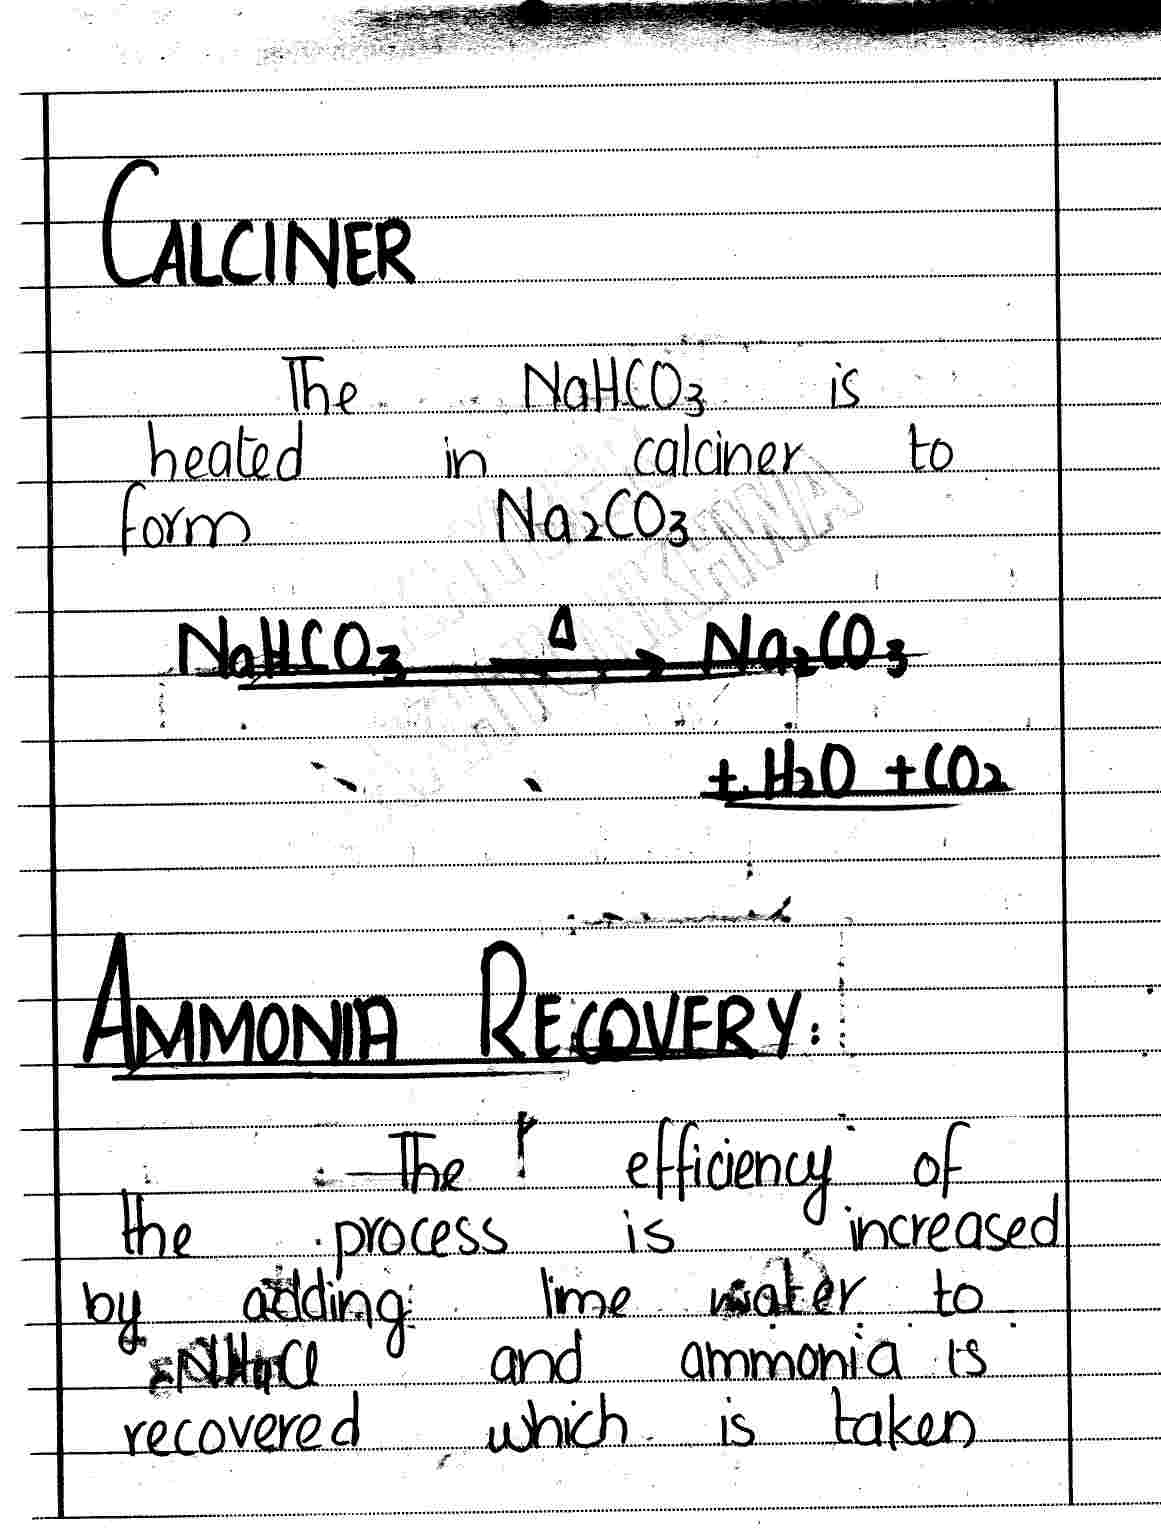 CALCINER
The NaHCO₃ is
heated in calciner to
form Na₂CO₃
NaHCO₃ Δ→ Na₂CO₃
+ H₂O + CO₂
AMMONIA RECOVERY:
The efficiency of
the process is increased
by adding lime water to
NH₄Cl and ammonia is
recovered which is taken